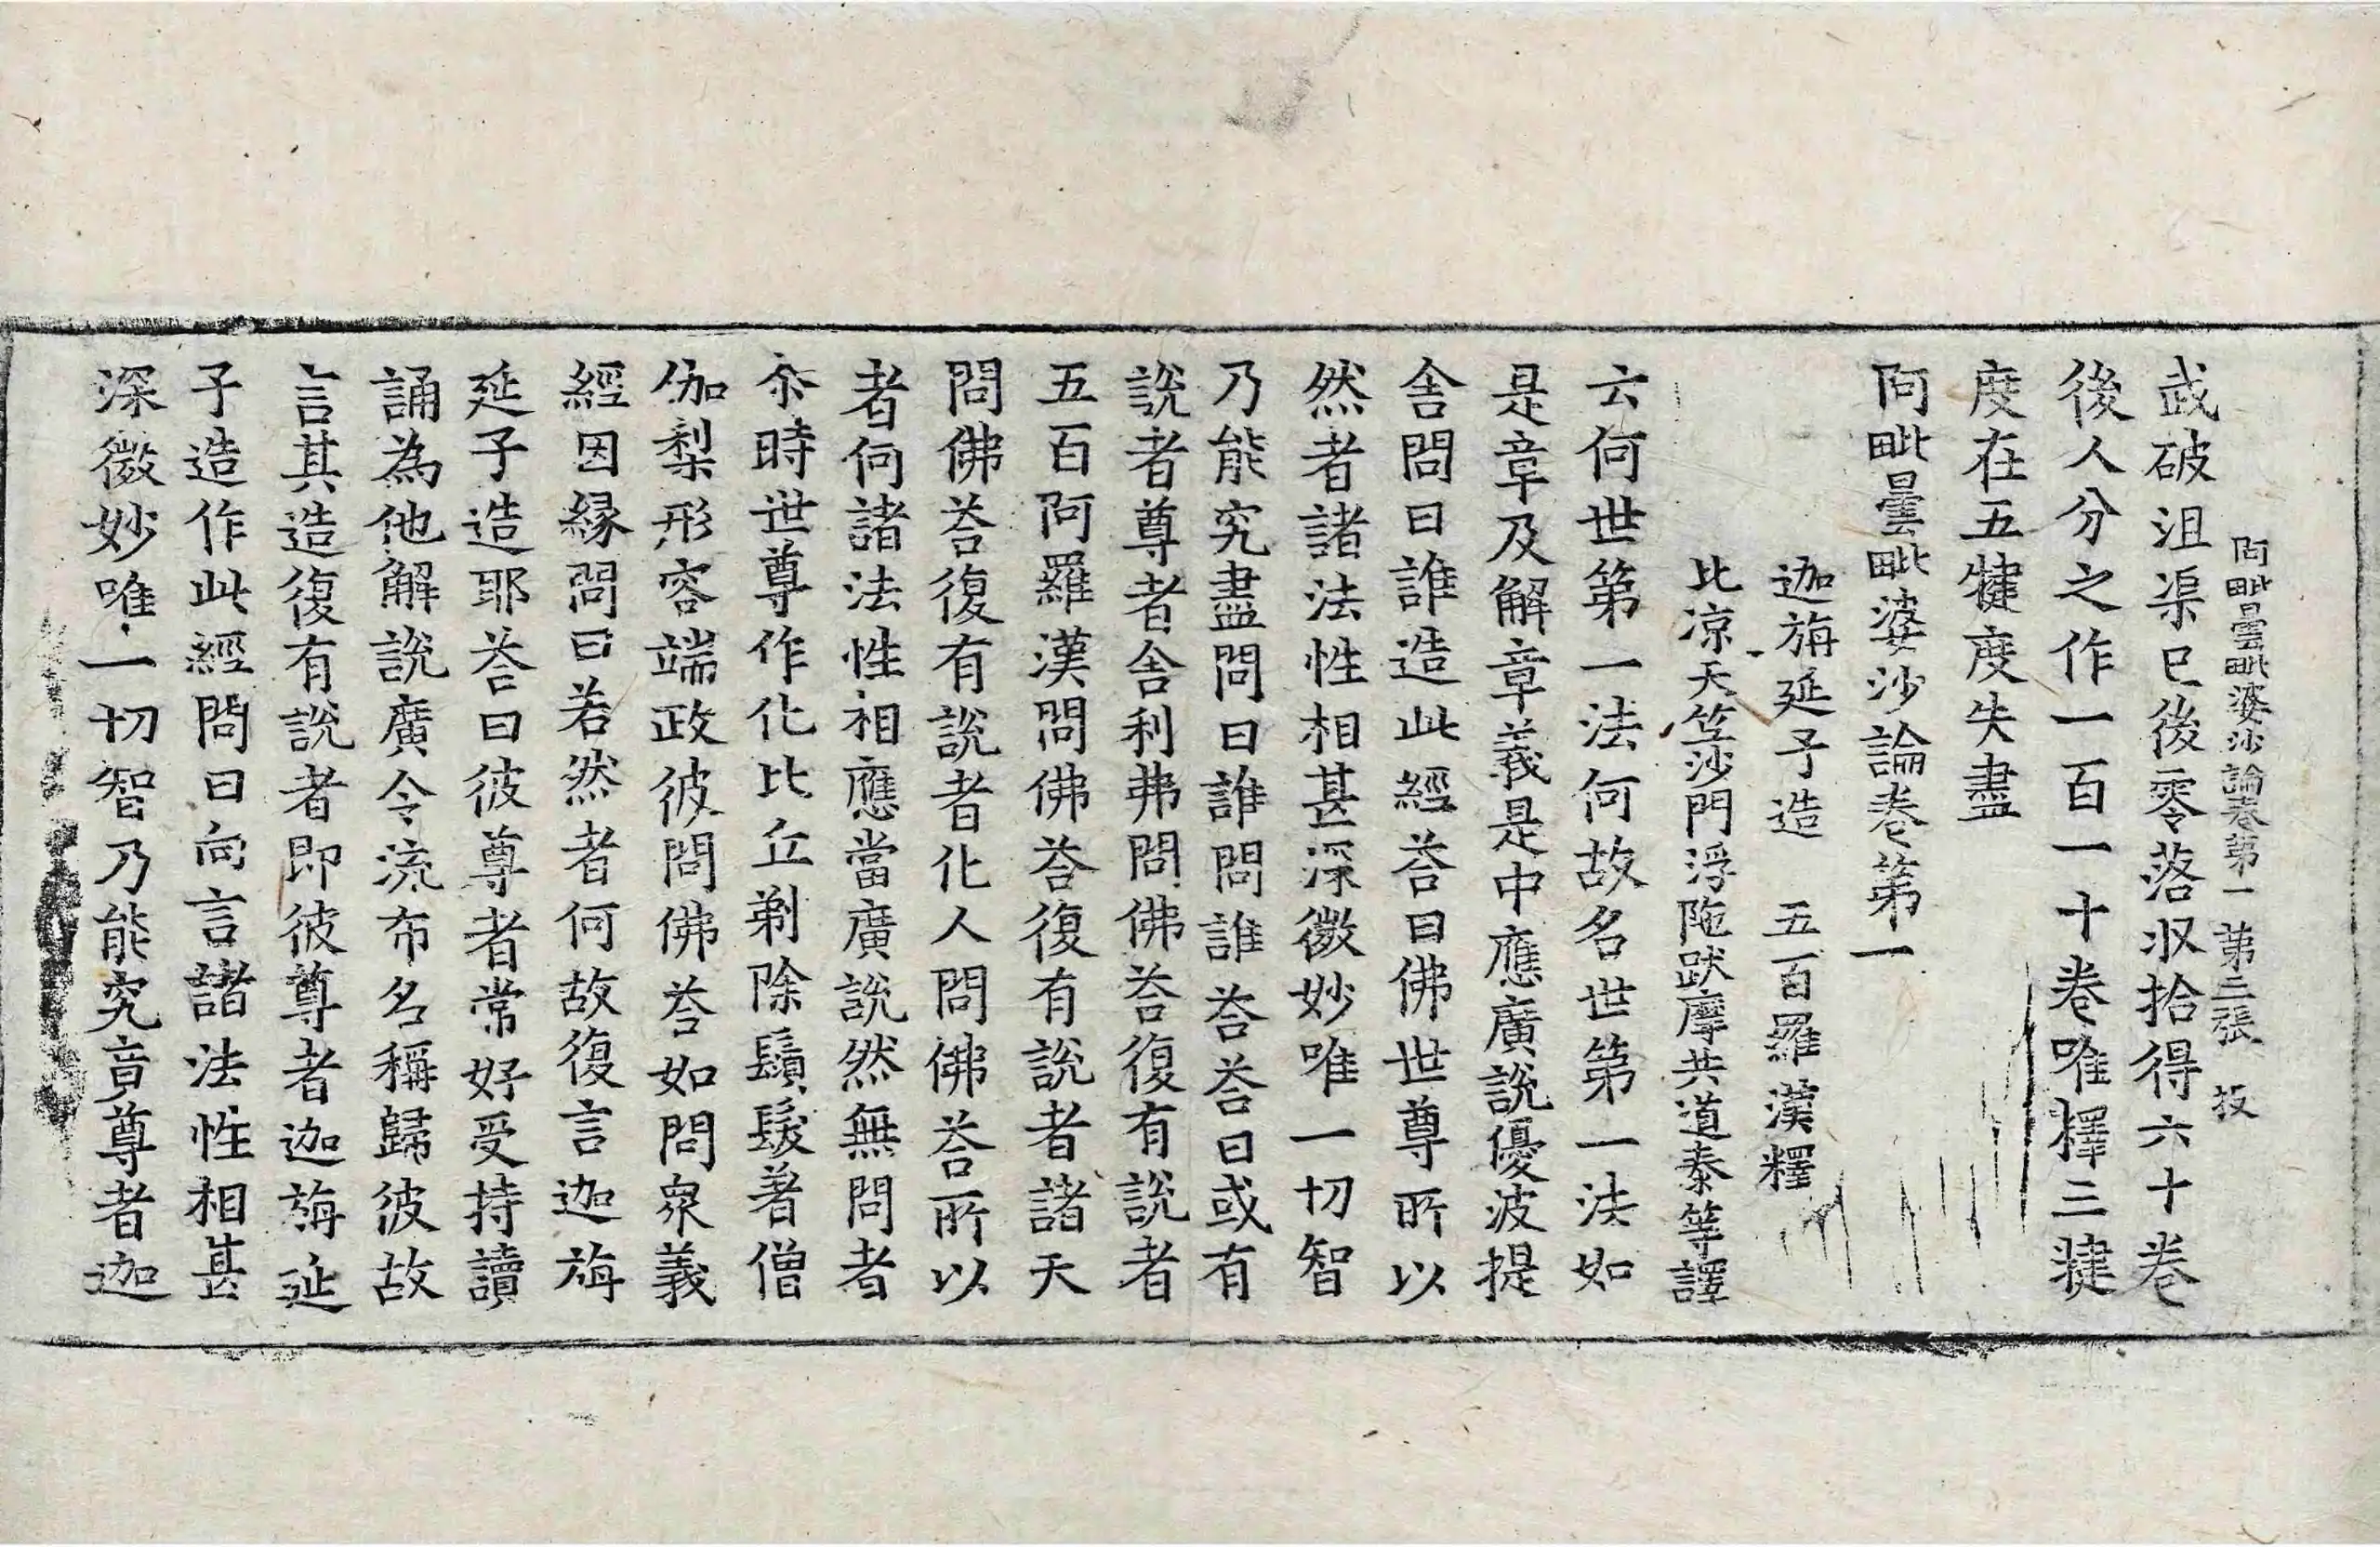 阿毗曇毗婆沙論卷第一 第三張 投
武破沮渠已後零落收拾得六十卷
後人分之作一百一十卷唯釋三揵
度在五犍度失盡
阿毗曇毗婆沙論卷第一
迦旃延子造 五百羅漢釋
北涼天竺沙門浮陁跋摩共道泰等譯
云何世第一法何故名世第一法如
是章及解章義是中應廣說優波提
舍問曰誰造此經荅曰佛世尊所以
然者諸法性相甚深微妙唯一切智
乃能究盡問曰誰問誰荅荅曰或有
說者尊者舍利弗問佛荅復有說者
五百阿羅漢問佛荅復有說者諸天
問佛荅復有說者化人問佛荅所以
者何諸法性相應當廣說然無問者
尒時世尊作化比丘剃除鬚髮著僧
伽梨形容端政彼問佛荅如問衆義
經因緣問曰若然者何故復言迦旃
延子造耶荅曰彼尊者常好受持讀
誦為他解說廣令流布名稱歸彼故
言其造復有說者即彼尊者迦旃延
子造作此經問曰向言諸法性相甚
深微妙唯一切智乃能究竟尊者迦